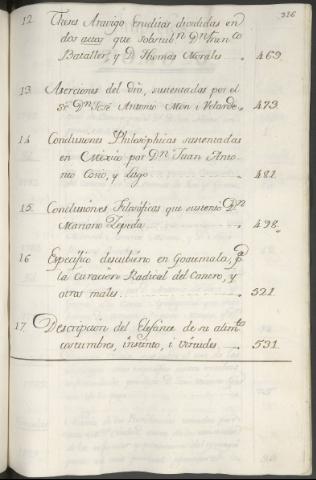 326
12. Theses Aravigo eruditas divididas en
dos actos que
Bataller, y Dn Thomas Morales .. 463.
13. Aserciones del dro, sustentadas por el
Sr Dn José Antonio Mon i Velarde. 473.
14. Conclusiones Philosóphicas sustentadas
en México por Dn Juan Anto-
nio , y Lugo .... 481.
15. Conclusiones Filosóficas que sustentó Dn
Mariano Zepeda ........ 498.
16 Específico descubierto en Goatemala, pa
la curación Radical del Cancro, y
otras males ........ 521.
17. Descripción del Elefante de su alimto
costumbres, instinto, i virtudes .... 531.